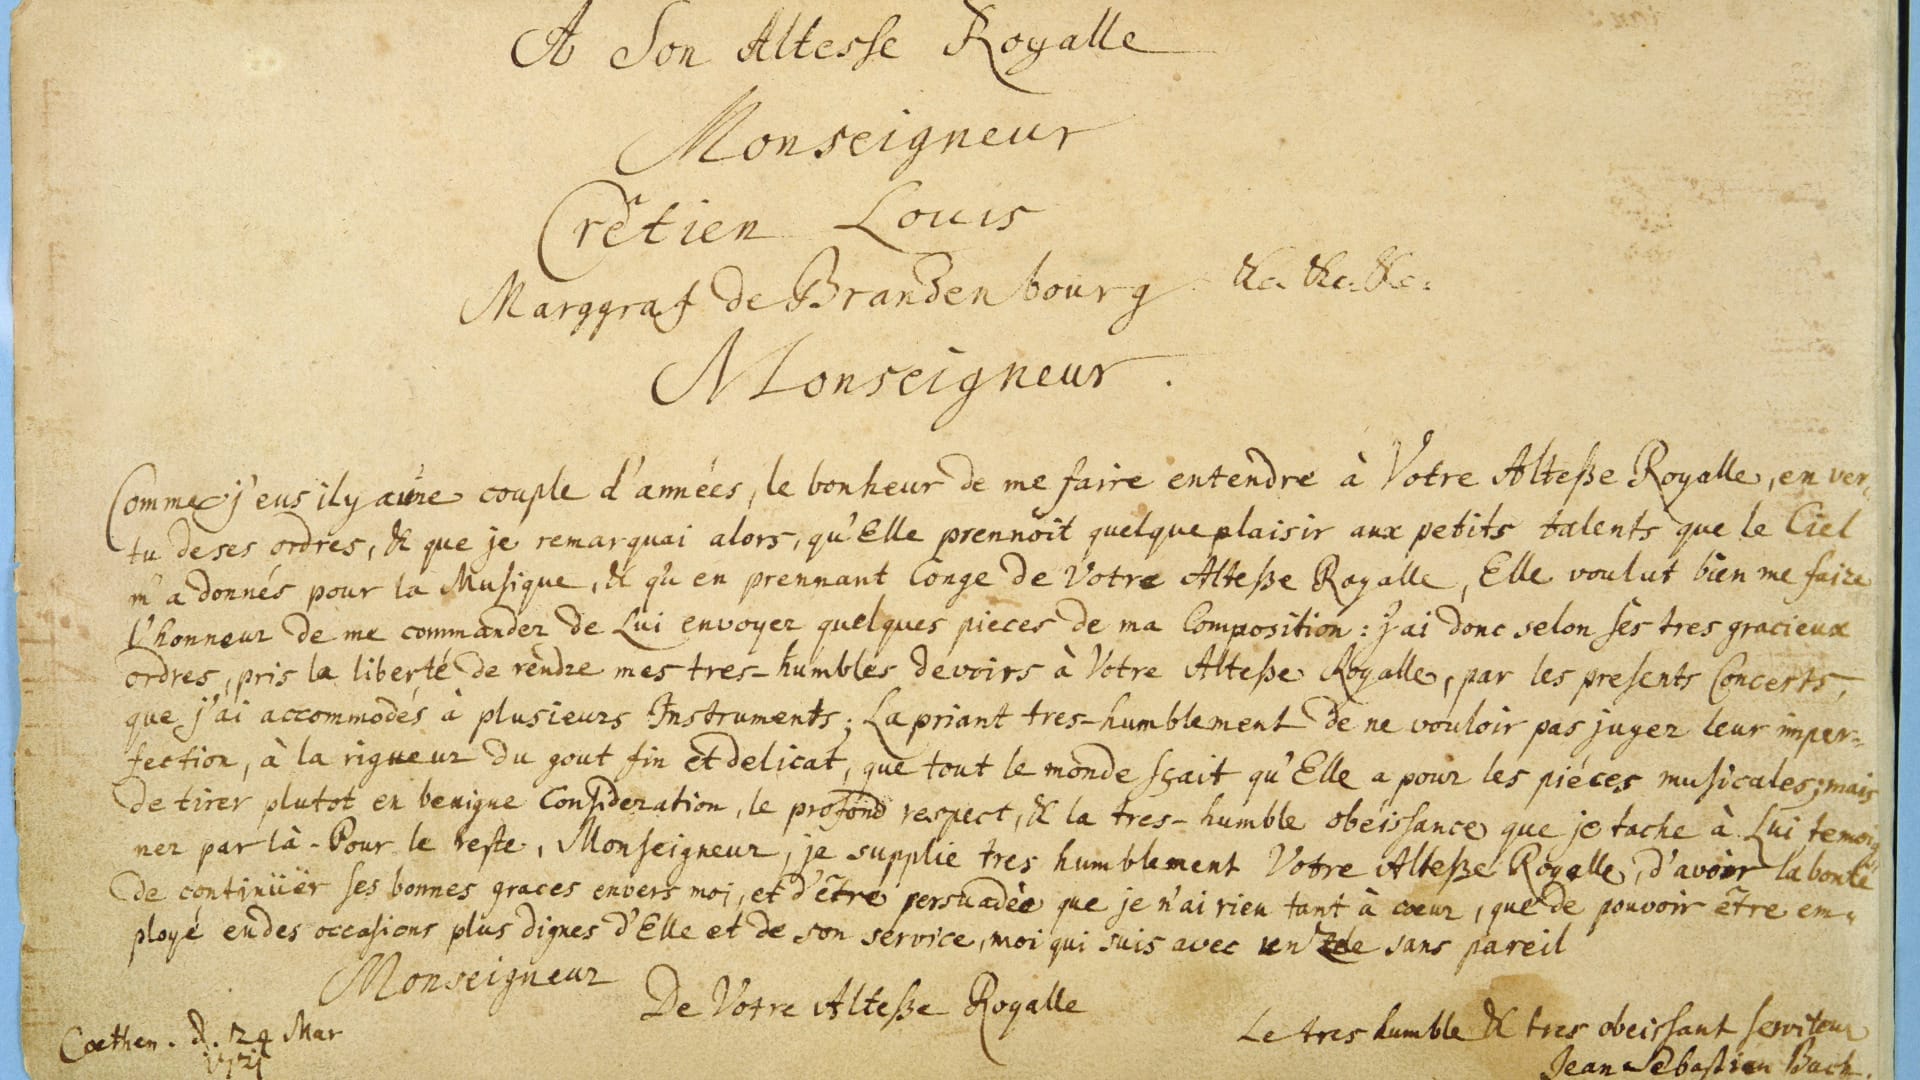 A Son Altesse Royalle
Monseigneur
Crêtien Louis
Marggraf de Brandenbourg &c. &c. &c:
Monseigneur.
Comme j'eus il y a une couple d'années, le bonheur de me faire entendre à Votre Alteße Royalle, en ver-
tu de ses ordres, & que je remarquai alors, qu'Elle prennoit quelque plaisir aux petits talents que le Ciel
m'a donnés pour la Musique, & qu'en prennant Conge de Votre Alteße Royalle, Elle voulut bien me faire
l'honneur de me commander de Lui envoyer quelques pieces de ma Composition: j'ai donc selon ses tres gracieux
ordres, pris la liberté de rendre mes tres-humbles devoirs à Votre Alteße Royalle, par les presents Concerts,
que j'ai accommodés à plusieurs Instruments; La priant tres-humblement de ne vouloir pas juger leur imper-
fection, à la rigueur du gout fin et delicat, que tout le monde sçait qu'Elle a pour les piéces musicales; mais
de tirer plutot en benigne Consideration, le profond respect, & la tres-humble obéissance que je tache à Lui temoig-
ner par là. Pour le reste, Monseigneur, je supplie tres humblement Votre Alteße Royalle, d'avoir la bonté
de continüer ses bonnes graces envers moi, et d'être persuadèe que je n'ai rien tant à cœur, que de pouvoir être em-
ployé en des occasions plus dignes d'Elle et de son service, moi qui suis avec un zele sans pareil
Monseigneur
De Votre Alteße Royalle
Coethen. d. 24 Mar
1721
Le tres humble & tres obeissant serviteur
Jean Sebastien Bach.